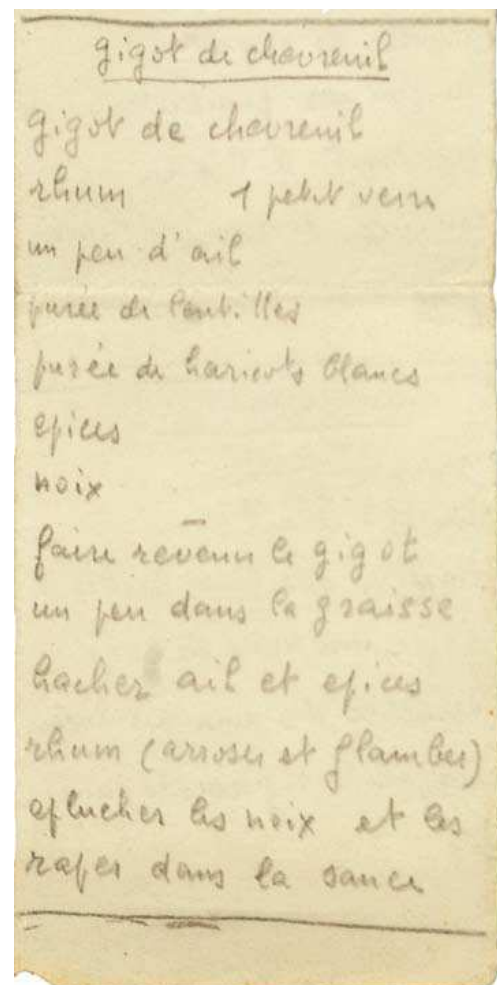 gigot de chevreuil
gigot de chevreuil
rhum 1 petit verre
un peu d'ail
purée de lentilles
purée de haricots blancs
epices
noix
faire revenir le gigot
un peu dans la graisse
hacher ail et epices
rhum (arroser et flamber)
eplucher les noix et les
raper dans la sauce